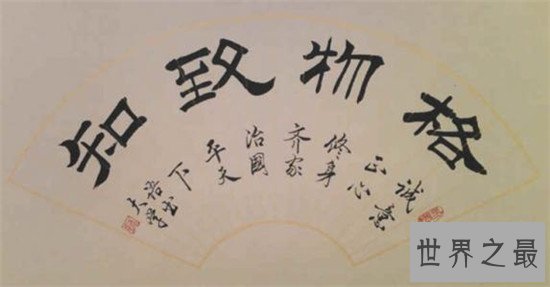 格物致知
诚意
正心
修身
齐家
治國
平天
下
语出
大学
世界之最